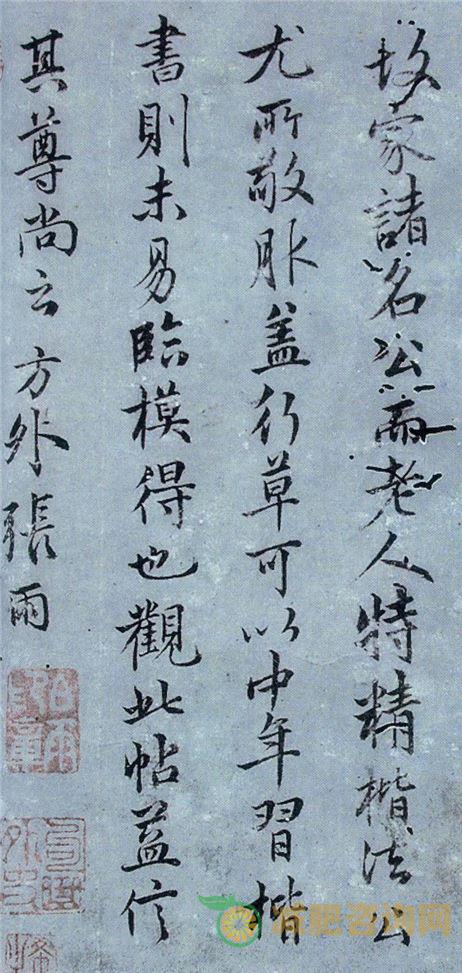 故家諸名公老人特精楷法公
尤所敬服盖行草可以中年習楷
書則未易臨模得也觀此帖益信
其尊尚云方外張雨
句曲外史
减肥咨询网